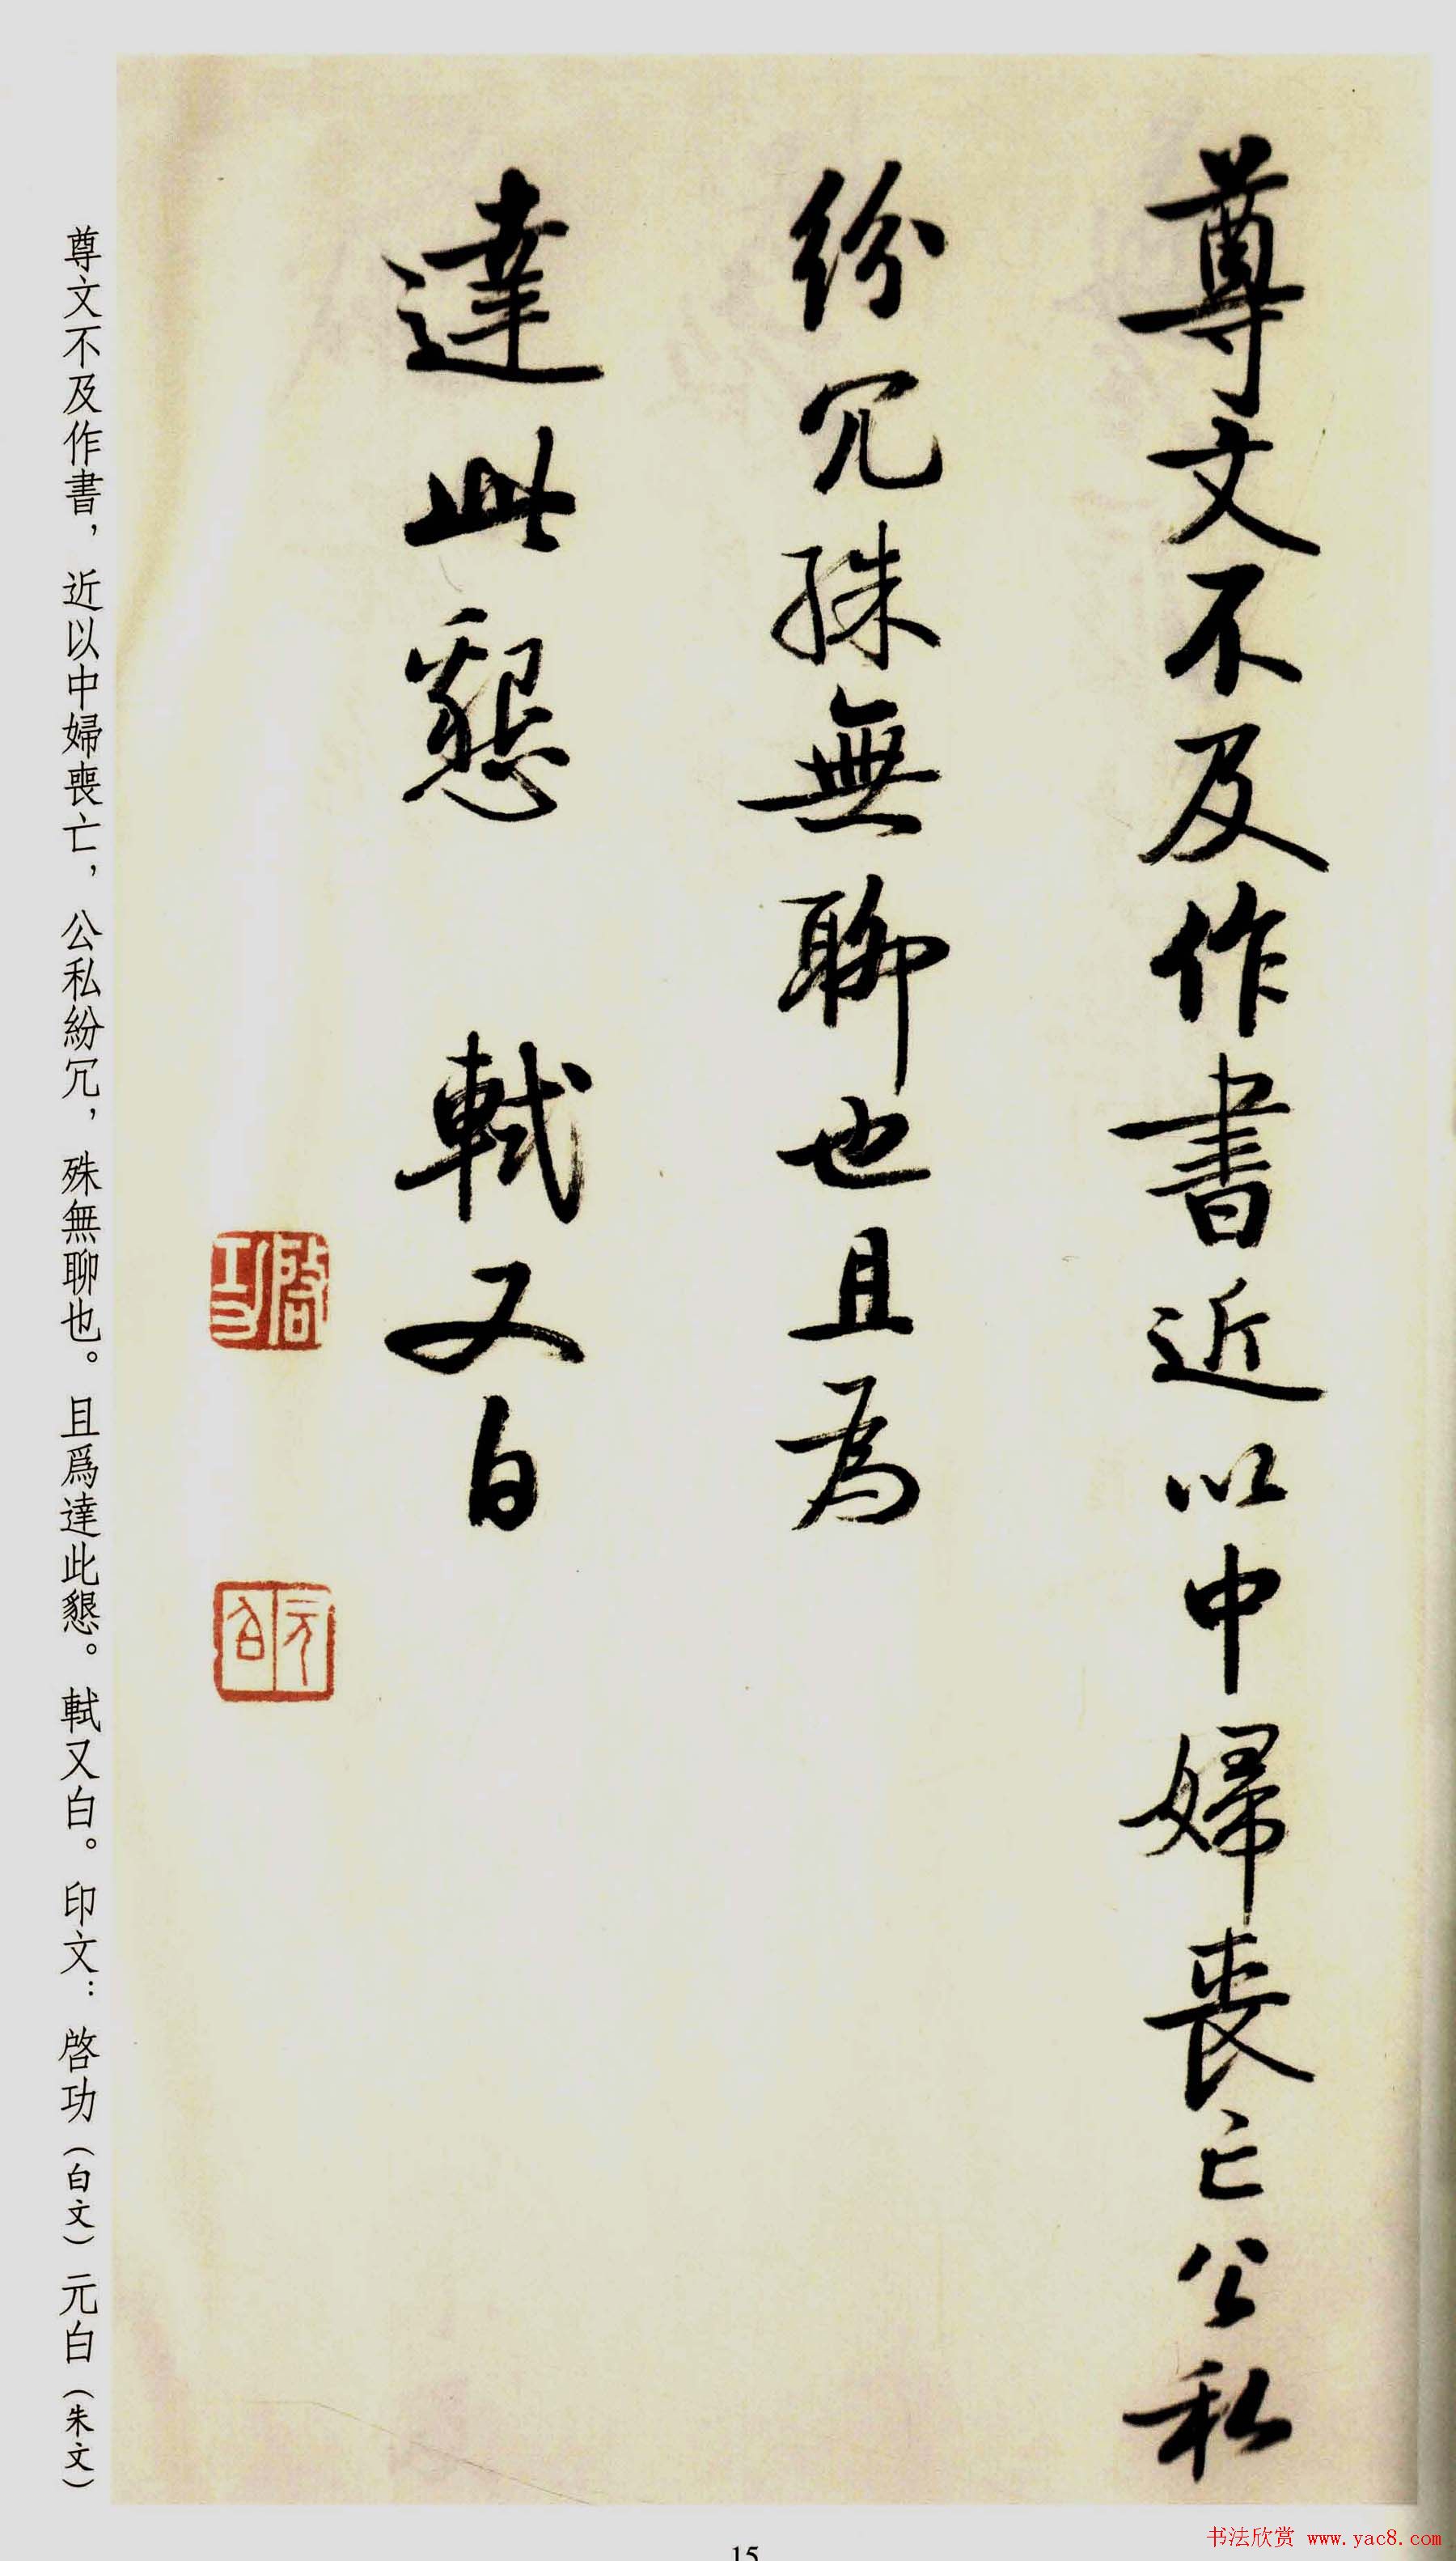 尊文不及作書近以中婦喪亡公私
紛冗殊無聊也且為
達此懇 軾又白
啓功
元白
尊文不及作書，近以中婦喪亡，公私紛冗，殊無聊也。且爲達此懇。軾又白。印文：啓功（白文）元白（朱文）
15
书法欣赏 www.yac8.com